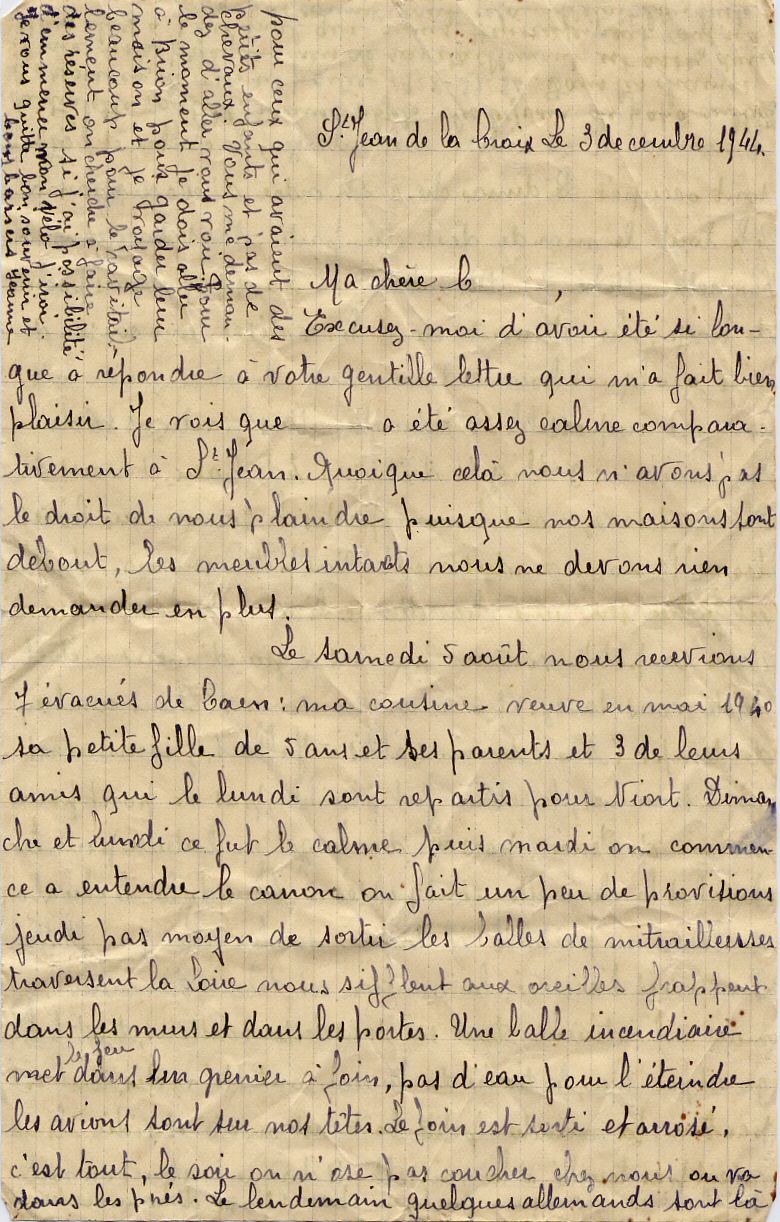 St Jean de la Croix Le 3 decembre 1944.
Ma chère C ,
Excusez-moi d'avoir été si lon-
gue a répondre à votre gentille lettre qui m'a fait bien
plaisir. Je vois que a été assez calme compara-
tivement à St Jean. Quoique celà nous n'avons pas
le droit de nous plaindre puisque nos maisons sont
debout, les meubles intacts nous ne devons rien
demander en plus.
Le samedi 5 août nous recevions
7 évacués de Caen : ma cousine veuve en mai 1940
sa petite fille de 5 ans et ses parents et 3 de leurs
amis qui le lundi sont repartis pour Niort. Diman
che et lundi ce fut le calme puis mardi on commen
ce a entendre le canon on fait un peu de provisions
jeudi pas moyen de sortir les balles de mitrailleuses
traversent la Loire nous sifflent aux oreilles frappent
dans les murs et dans les portes. Une balle incendiaire
met le feu dans un grenier à foin, pas d'eau pour l'éteindre
les avions sont sur nos têtes. Le foin est sorti et arrosé,
c'est tout, le soir on n'ose pas coucher chez nous on va
dans les prés. Le lendemain quelques allemands sont là
pour ceux qui avaient des
petits enfants et pas de
chevaux. Vous me deman-
dez d'aller vous voir pour
le moment je dois aller
à Brion pour garder leur
maison et je voyage
beaucoup pour le ravitail-
lement on cherche à faire
des réserves si j'ai possibilité
d'emmener mon vélo j'irai.
Je vous quitte bon souvenir et
bons baisers Jeanne